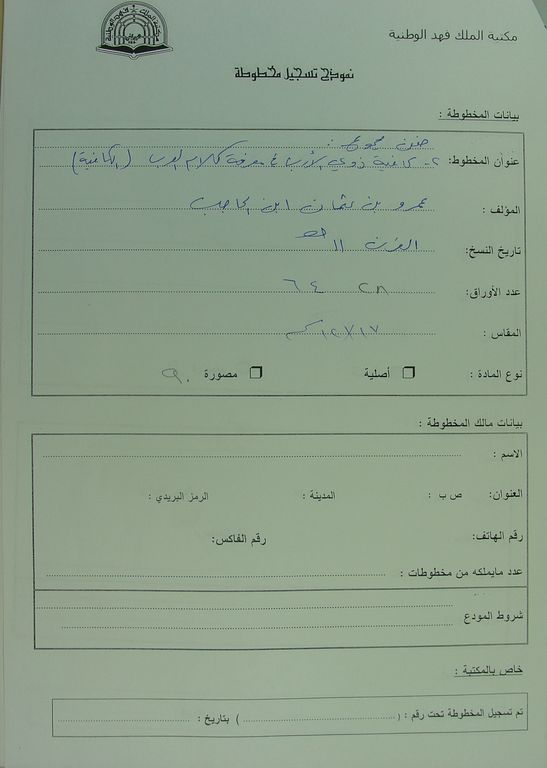 مكتبة الملك فهد الوطنية
نموذج تسجيل مخطوطة
بيانات المخطوطة :
ضمن مجموع :
عنوان المخطوط: ٢- كافية ذوي الأرب في معرفة كلام العرب (الكافية)
المؤلف : عمرو بن عثمان ابن الحاجب
تاريخ النسخ: القرن ١١ هـ
عدد الأوراق: ٦٤
المقاس : ١٧×١٢ سم
نوع المادة : أصلية مصورة
بيانات مالك المخطوطة :
الاسم :
العنوان: ص ب : المدينة : الرمز البريدي :
رقم الهاتف: رقم الفاكس:
عدد مايملكه من مخطوطات :
شروط المودع
خاص بالمكتبة :
تم تسجيل المخطوطة تحت رقم : ( ) بتاريخ :